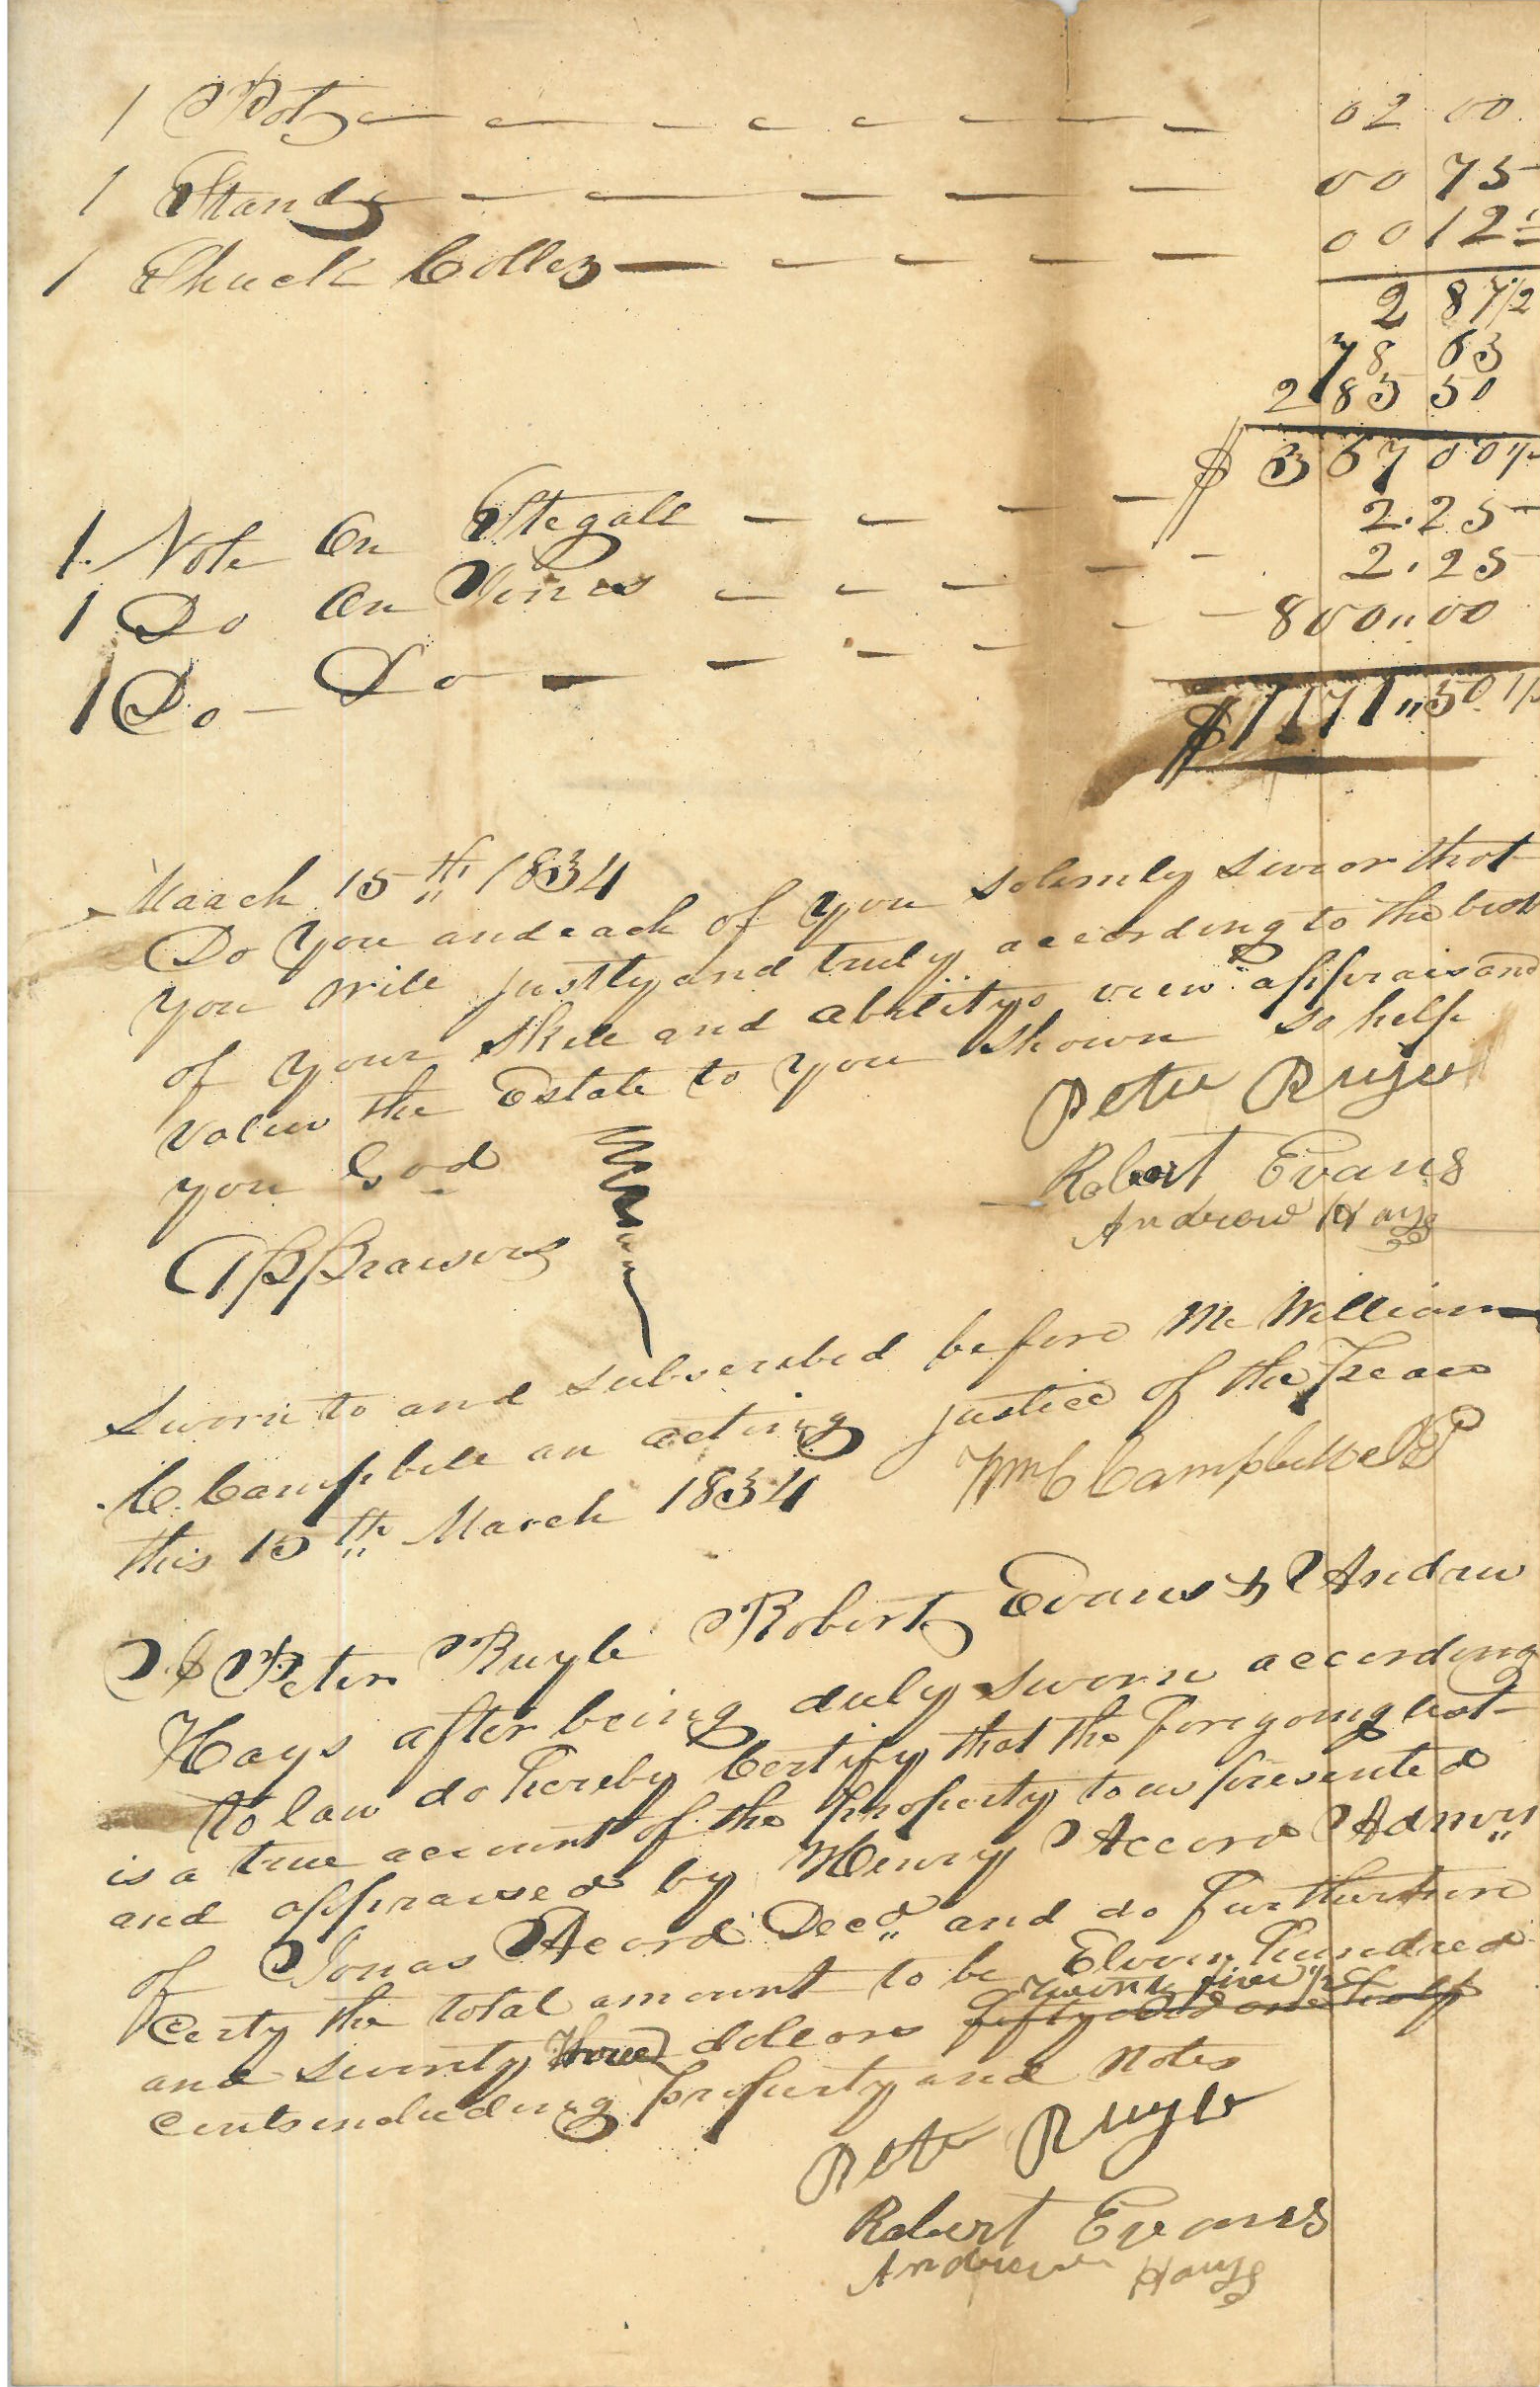 1 Pot 02 00
1 Stand 00 75
1 Shuck Coller 00 12 1/2
2 87 1/2
78 63
285 50
$ 367 00 1/2
1 Note On Stegall 2.25
1 Do On Vines 2.25
1 Do Do 800"00
$1171"50 1/2
March 15th 1834
Do You and each of you solemly swear that
you will justly and truly according to the best
of your skill and abilitys view appraise and
value the Estate to you shown so help
you God
Peter Ruyle
Robert Evans
Andrew Hays
Appraisers
Sworn to and subscribed before Me William
C. Campbell an acting justice of the Peace
this 15th March 1834 Wm C Campbell JP
Peter Ruyle Robert Evans & Andrew
Hays after being duly sworn according
to law do hereby Certify that the foregoing list
is a true account of the property to us presented
and appraised by Henry Accord Admr
of Jonas Acord Decd and do further
Certy the total amount to be Eleven hundred
and seventy three dollars fifty and one half twenty five 1/2
Cents including property and Notes
Peter Ruyle
Robert Evans
Andrew Hays